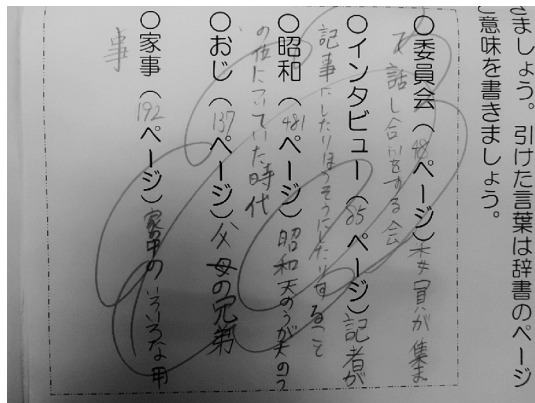 きましょう。引けた言葉は辞書のページ
と意味を書きましょう。
○委員会（48ページ）委員が集ま
って話し合いをする会
○インタビュー（85ページ）記者が
記事にしたりほうそうにしたりすること
○昭和（481ページ）昭和天のうが天のう
の位についていた時代
○おじ（137ページ）父母の兄弟
○家事（192ページ）家中のいろいろな用
事